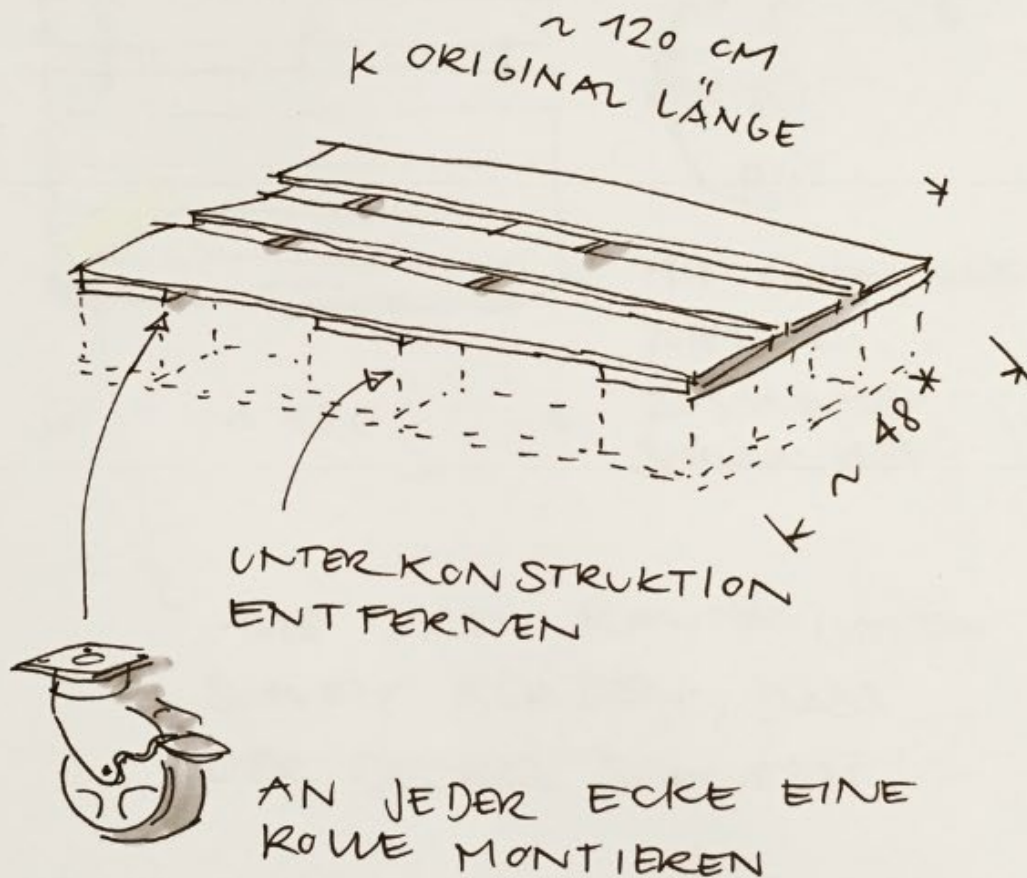 ~ 120 CM
K ORIGINAL LÄNGE
~ 48
UNTERKONSTRUKTION
ENTFERNEN
AN JEDER ECKE EINE
ROLLE MONTIEREN